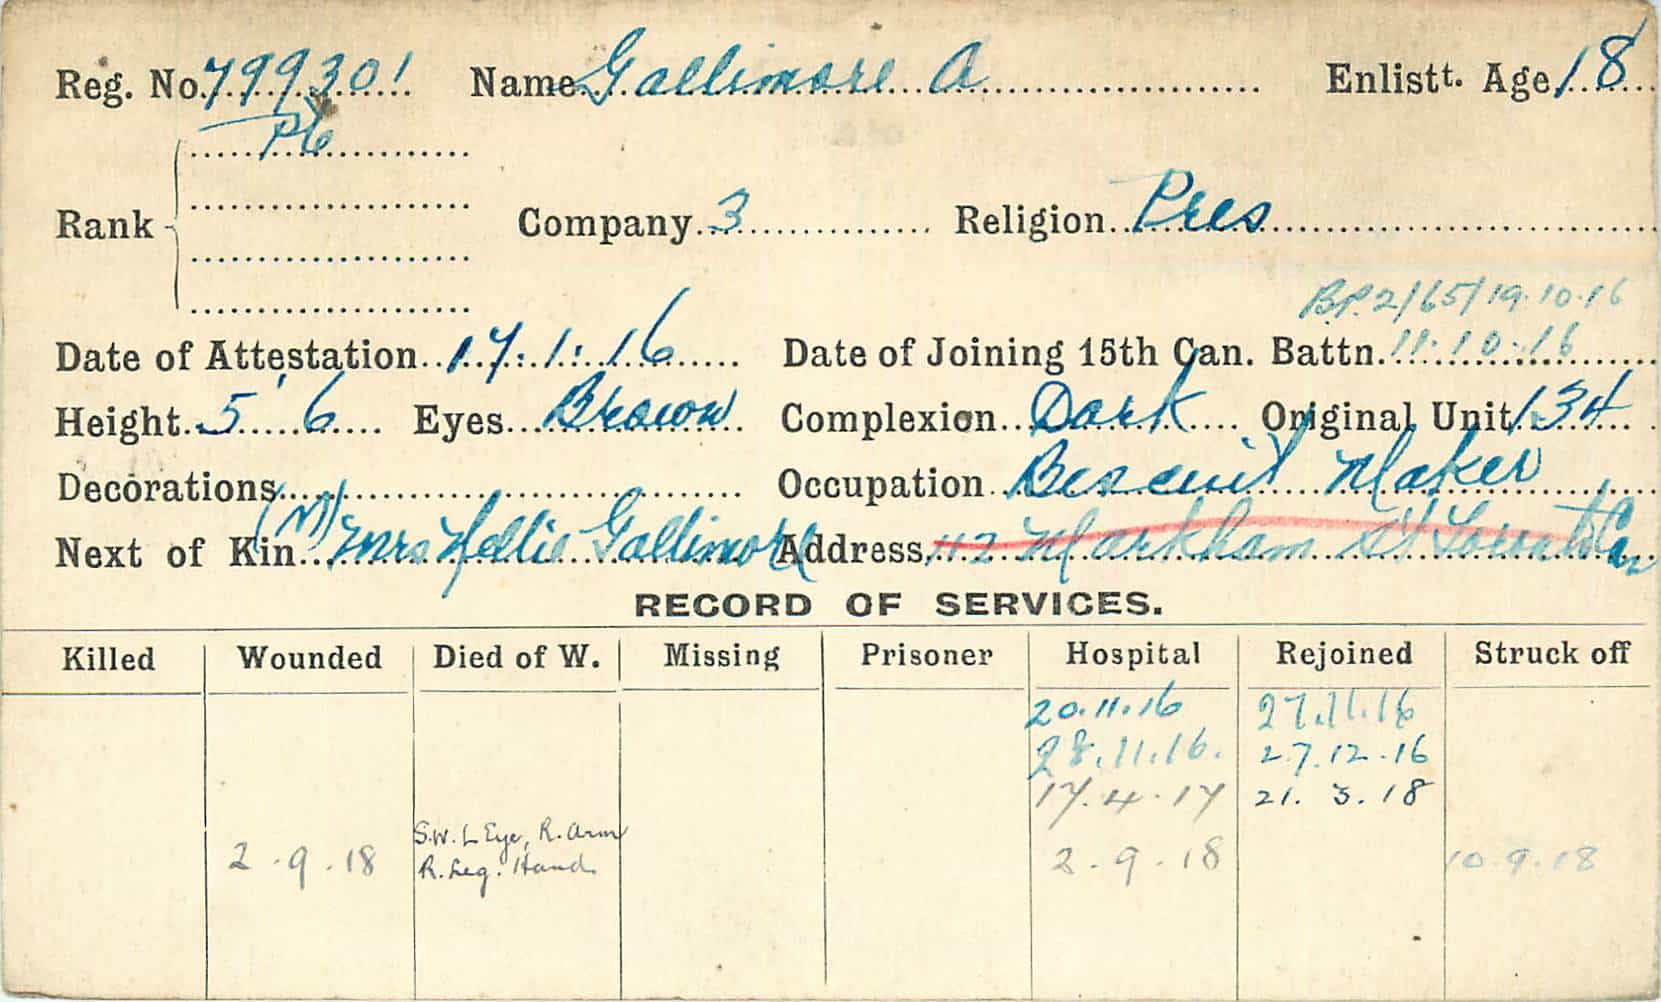 Reg. No. 799301 Name Gallimore A Enlistt. Age 18
Pte
Rank Company 3 Religion Pres
B.P. 2/65/19.10.16
Date of Attestation 17.1.16 Date of Joining 15th Can. Battn. 11.10.16
Height 5' 6 Eyes Brown Complexion Dark Original Unit 134
Decorations Occupation Biscuit Maker
Next of Kin (M) Mrs Nellie Gallimore Address 112 Markham St Toronto Can
RECORD OF SERVICES.
Killed Wounded Died of W. Missing Prisoner Hospital Rejoined Struck off
20.11.16 27.11.16
28.11.16. 27.12.16
17.4.17 21.3.18
S.W. L Eye, R. Arm
2.9.18 R. Leg. Hand 2.9.18 10.9.18